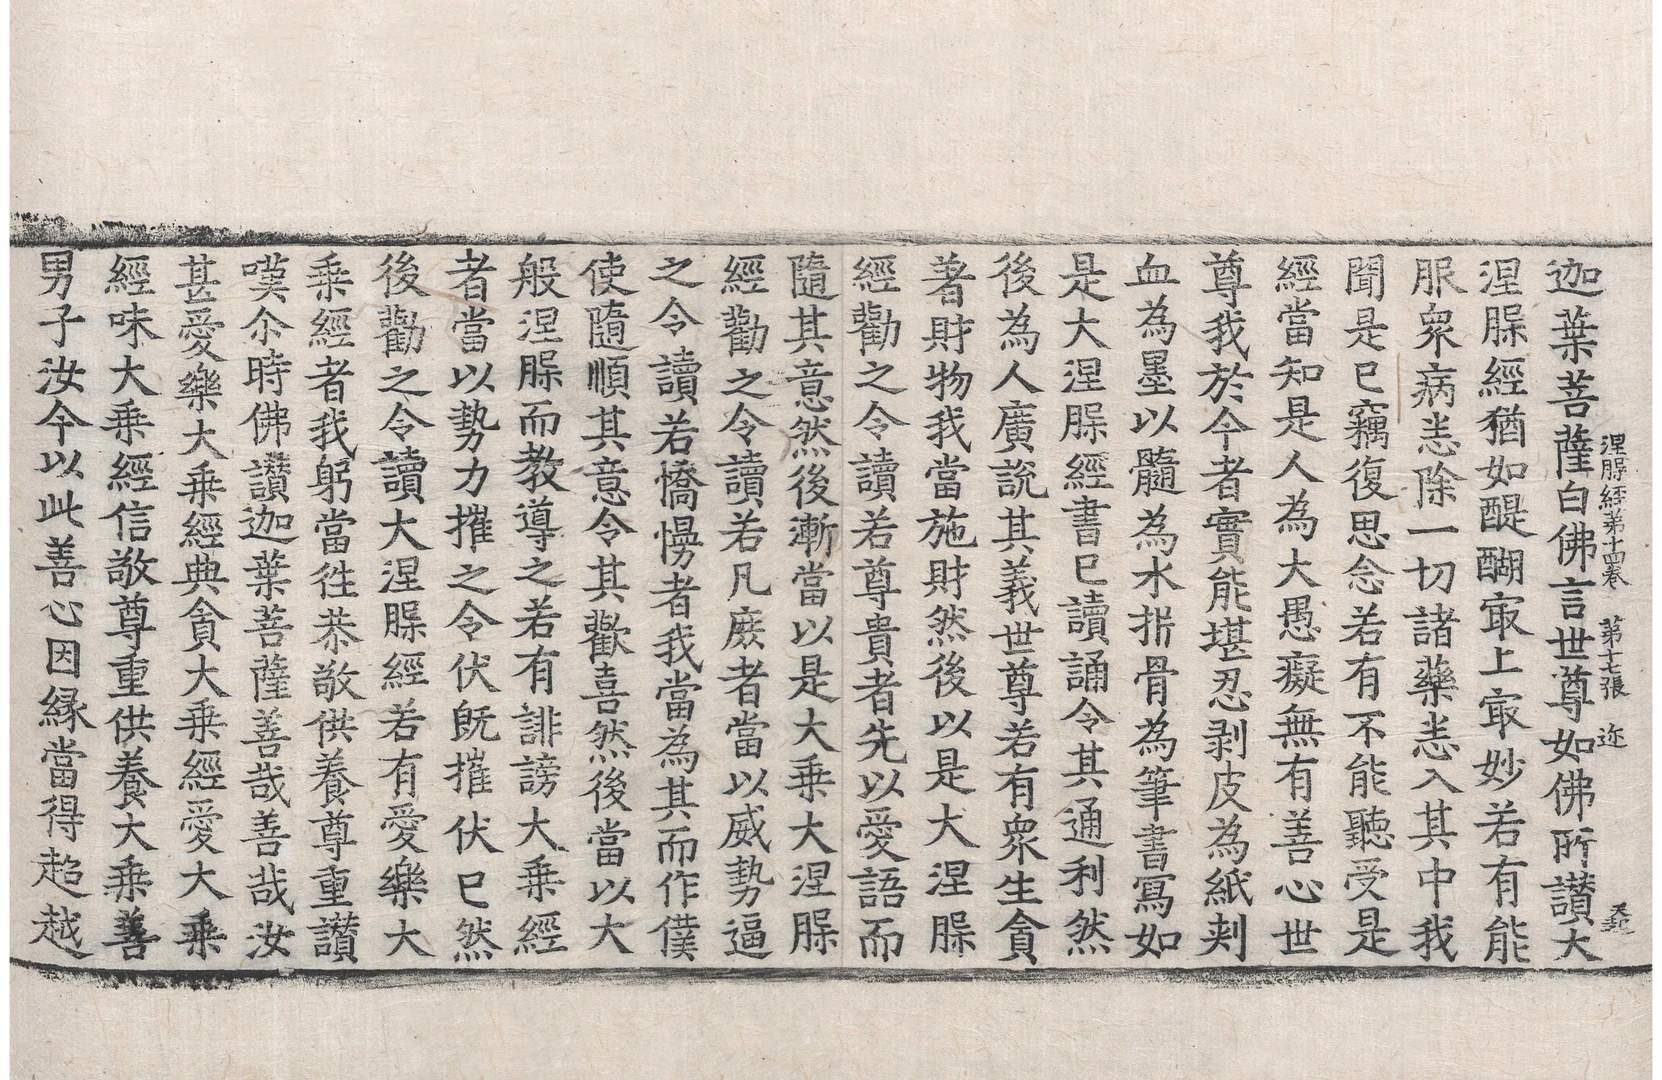 涅槃經第十四卷 第十七張 迩
迦葉菩薩白佛言世尊如佛所讚大
涅槃經猶如醍醐㝡上㝡妙若有能
服衆病悉除一切諸藥悉入其中我
聞是已竊復思念若有不能聽受是
經當知是人爲大愚癡無有善心世
尊我於今者實能堪忍剥皮爲紙刺
血爲墨以髓爲水折骨爲筆書寫如
是大涅槃經書已讀誦令其通利然
後爲人廣說其義世尊若有衆生貪
著財物我當施財然後以是大涅槃
經勸之令讀若尊貴者先以愛語而
隨其意然後漸當以是大乘大涅槃
經勸之令讀若凡庶者當以威勢逼
之令讀若憍慢者我當爲其而作僕
使隨順其意令其歡喜然後當以大
般涅槃而教導之若有誹謗大乘經
者當以勢力摧之令伏旣摧伏已然
後勸之令讀大涅槃經若有愛樂大
乘經者我躬當往恭敬供養尊重讚
嘆尒時佛讚迦葉菩薩善哉善哉汝
甚愛樂大乘經典貪大乘經愛大乘
經味大乘經信敬尊重供養大乘善
男子汝今以此善心因緣當得超越